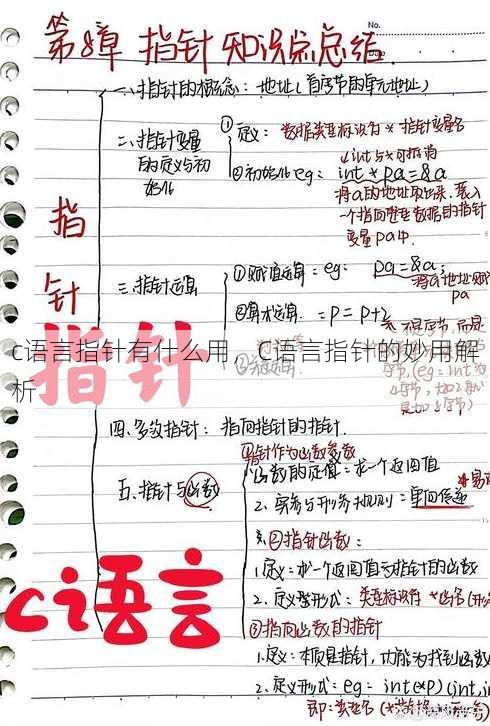 No.
Date
第8章 指针知识点总结.
一、指针的概念：地址（首字节的单元地址）
二、指针变量的定义与初始化
①定义：数据类型标识为 * 指针变量名
int与*可抵消
②初始化eg：int *pa=&a
将a的地址取出来，装入
一个指向整型数据的指针
变量pa中.
指针
三、指针运算
①赋值运算：eg： pa=&a;
将a地址赋
pa
②算术运算：p=p+2
不是字节，而是
字节，(eg=int为
4字节，
是加8字节)
指针
c语言指针有什么用，C语言指针的妙用解
析
四、多级指针：指向指针的指针.
五、指针与函数
①指针作为函数参数
1、函数的返值：求一个返回值
2、实参与形参规则：单向传递
②指针函数：
1、定义：求一个返回值为指针的函数
2、定义整形式：类型标识符 *函名(形
③指向函数的指针
1、定义：本质是指针，功能为找到函数
2、定义形式：eg= int(*p)(int,in
即：类型名(*指针名)
ci语言